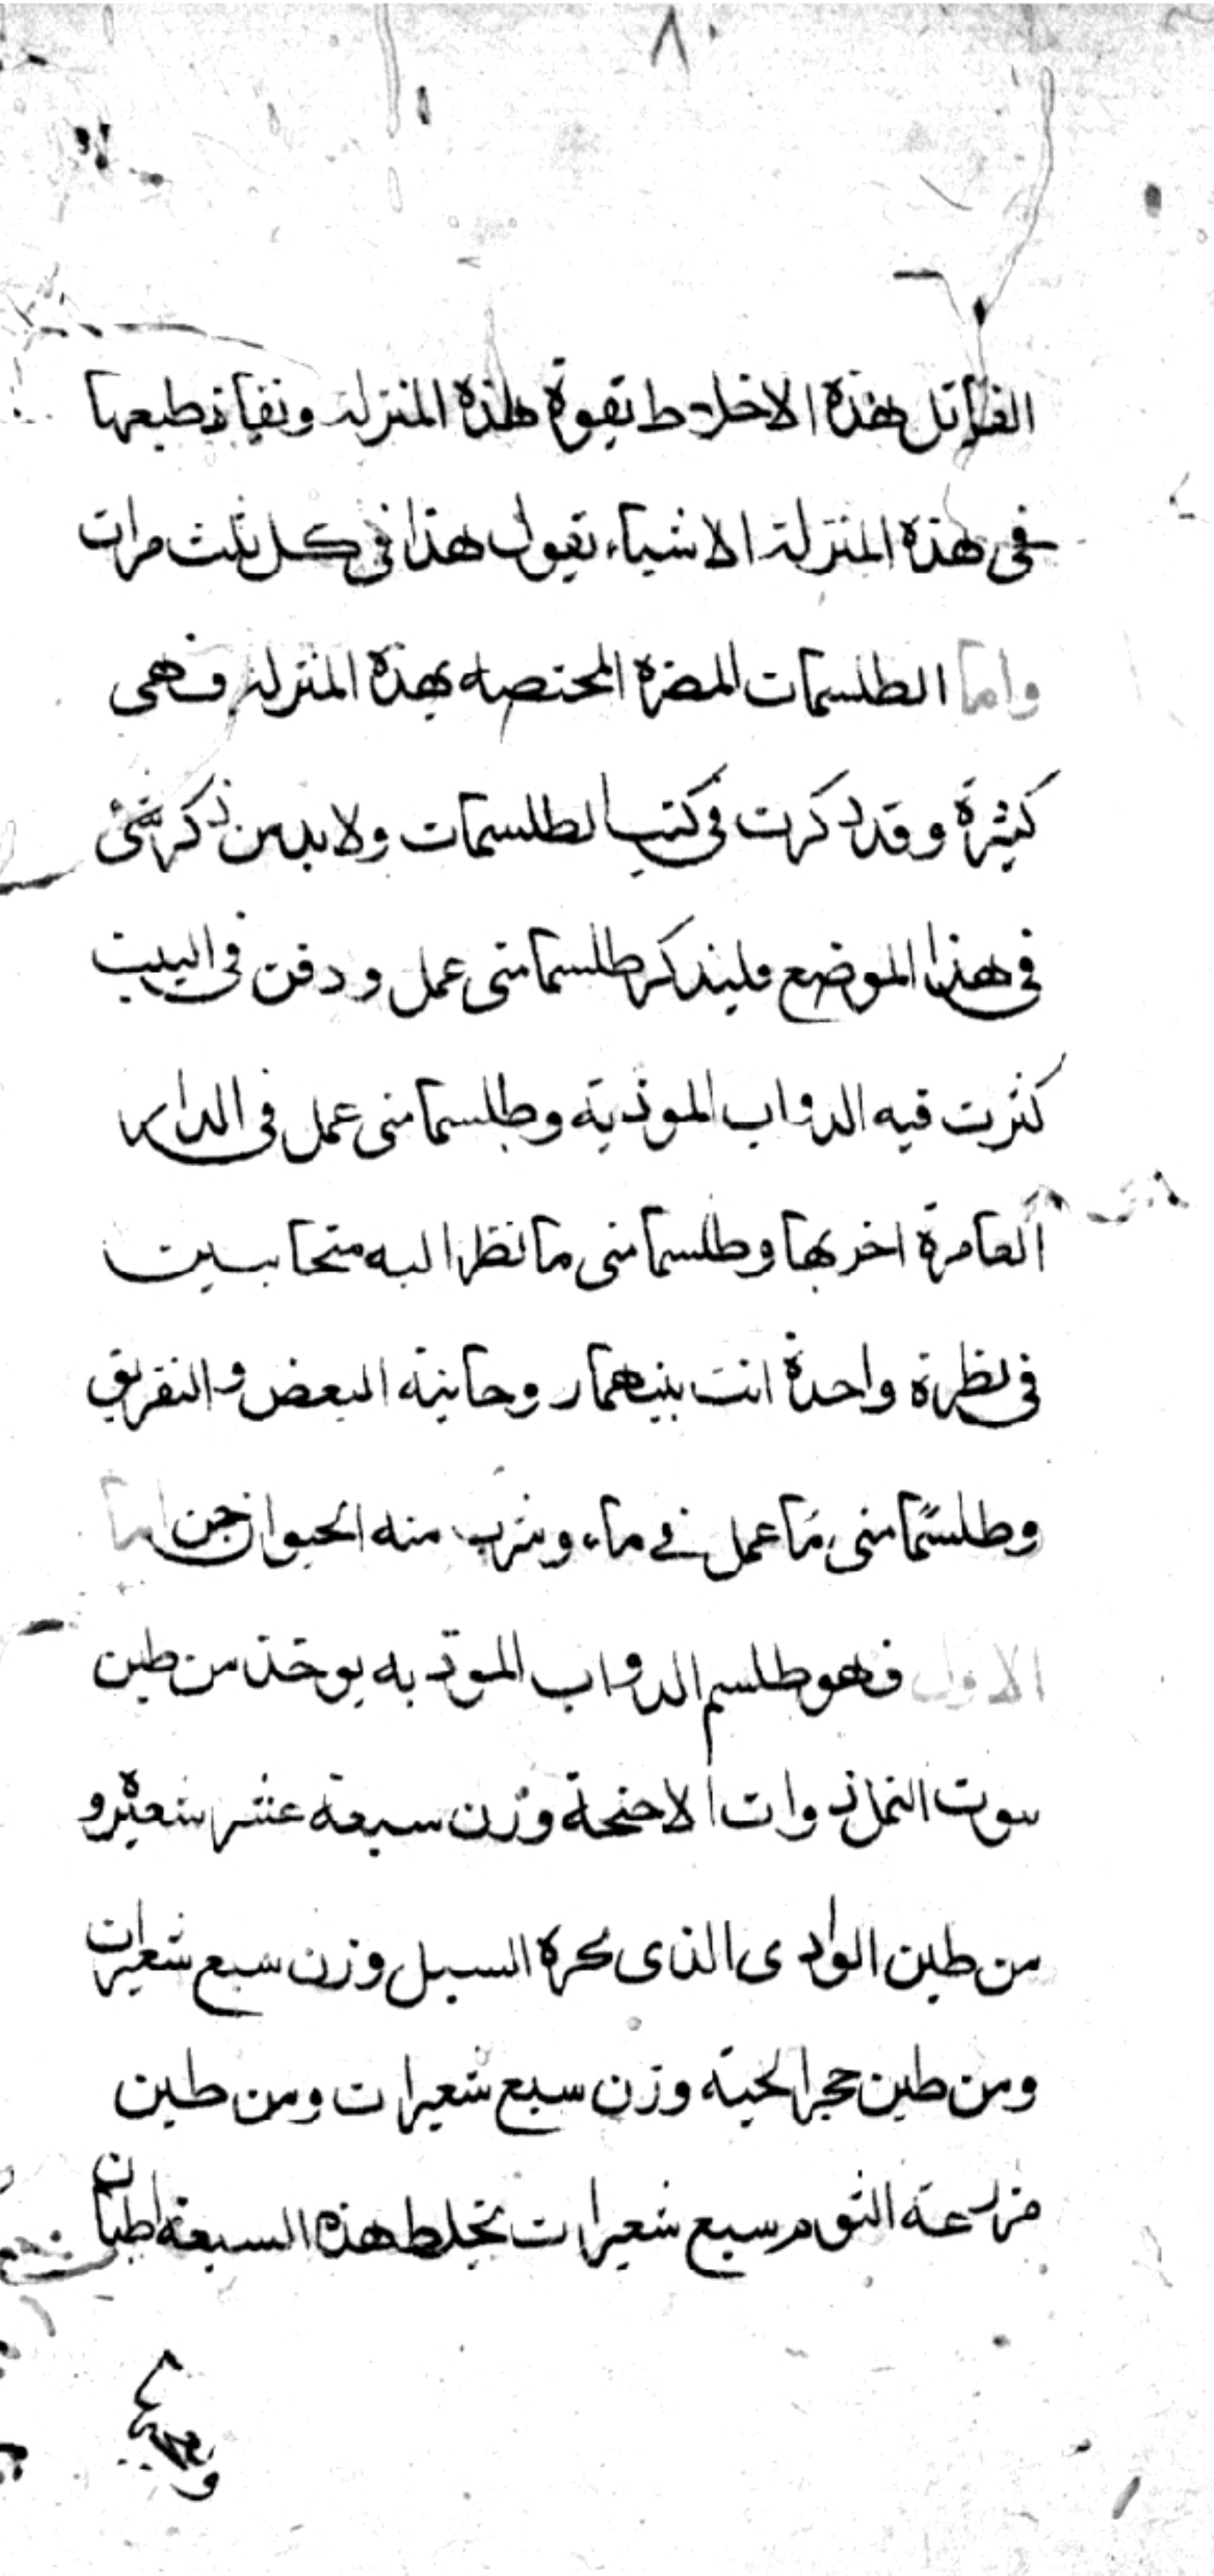 ٨
القاتل بهذه الاخلاط بقوة هذه المنزلة ونفاذ طبعها
فى هذه المنزلة الاشياء تقول هذا فى كل ثلث مرات
واما الطلسمات المضره المختصه بهذه المنزلة فهى
كثيرة وقد ذكرت فى كتب الطلسمات ولا بد من ذكر شئ
فى هذا الموضع فليذكر طلسما متى عمل ودفن فى البيت
كثرت فيه الدواب الموذية وطلسما متى عمل فى الدار
العامرة اخربها وطلسما متى ما نظر اليه متحابين
فى نظرة واحدة انت بينهما روحانية البغض والتفريق
وطلسما متى ما عمل فى ماء وشرب منه الحيوان جن اما
الاول فهو طلسم الدواب الموذيه يوخذ من طين
بيوت النمل ذوات الاجنحة وزن سبعة عشر شعيره و
من طين الوادى الذى بحره السيل وزن سبع شعيرات
ومن طين حجر الحية وزن سبع شعيرات ومن طين
مزرعة الثوم سبع شعيرات تخلط هذه السبعة اطيان